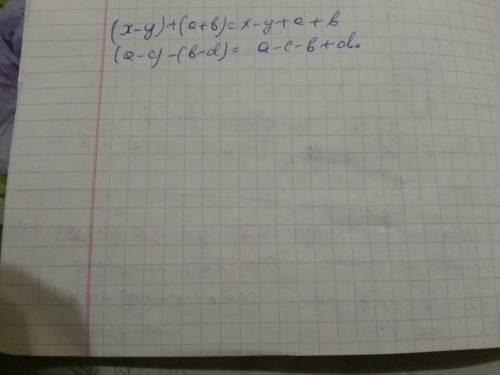 (x-y)+(a+b)=x-y+a+b
(a-c)-(b-d)= a-c-b+d.